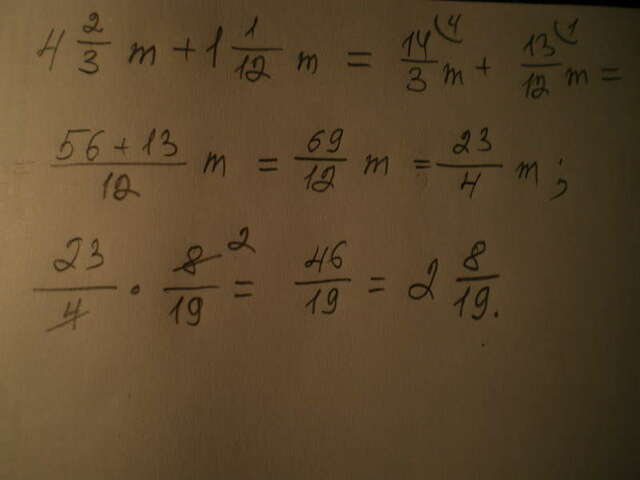 4 2/3 m + 1 1/12 m = 14/3 (4 m + 13/12 (1 m =
= 56 + 13/12 m = 69/12 m = 23/4 m ;
23/4 · 8/19 2 = 46/19 = 2 8/19.